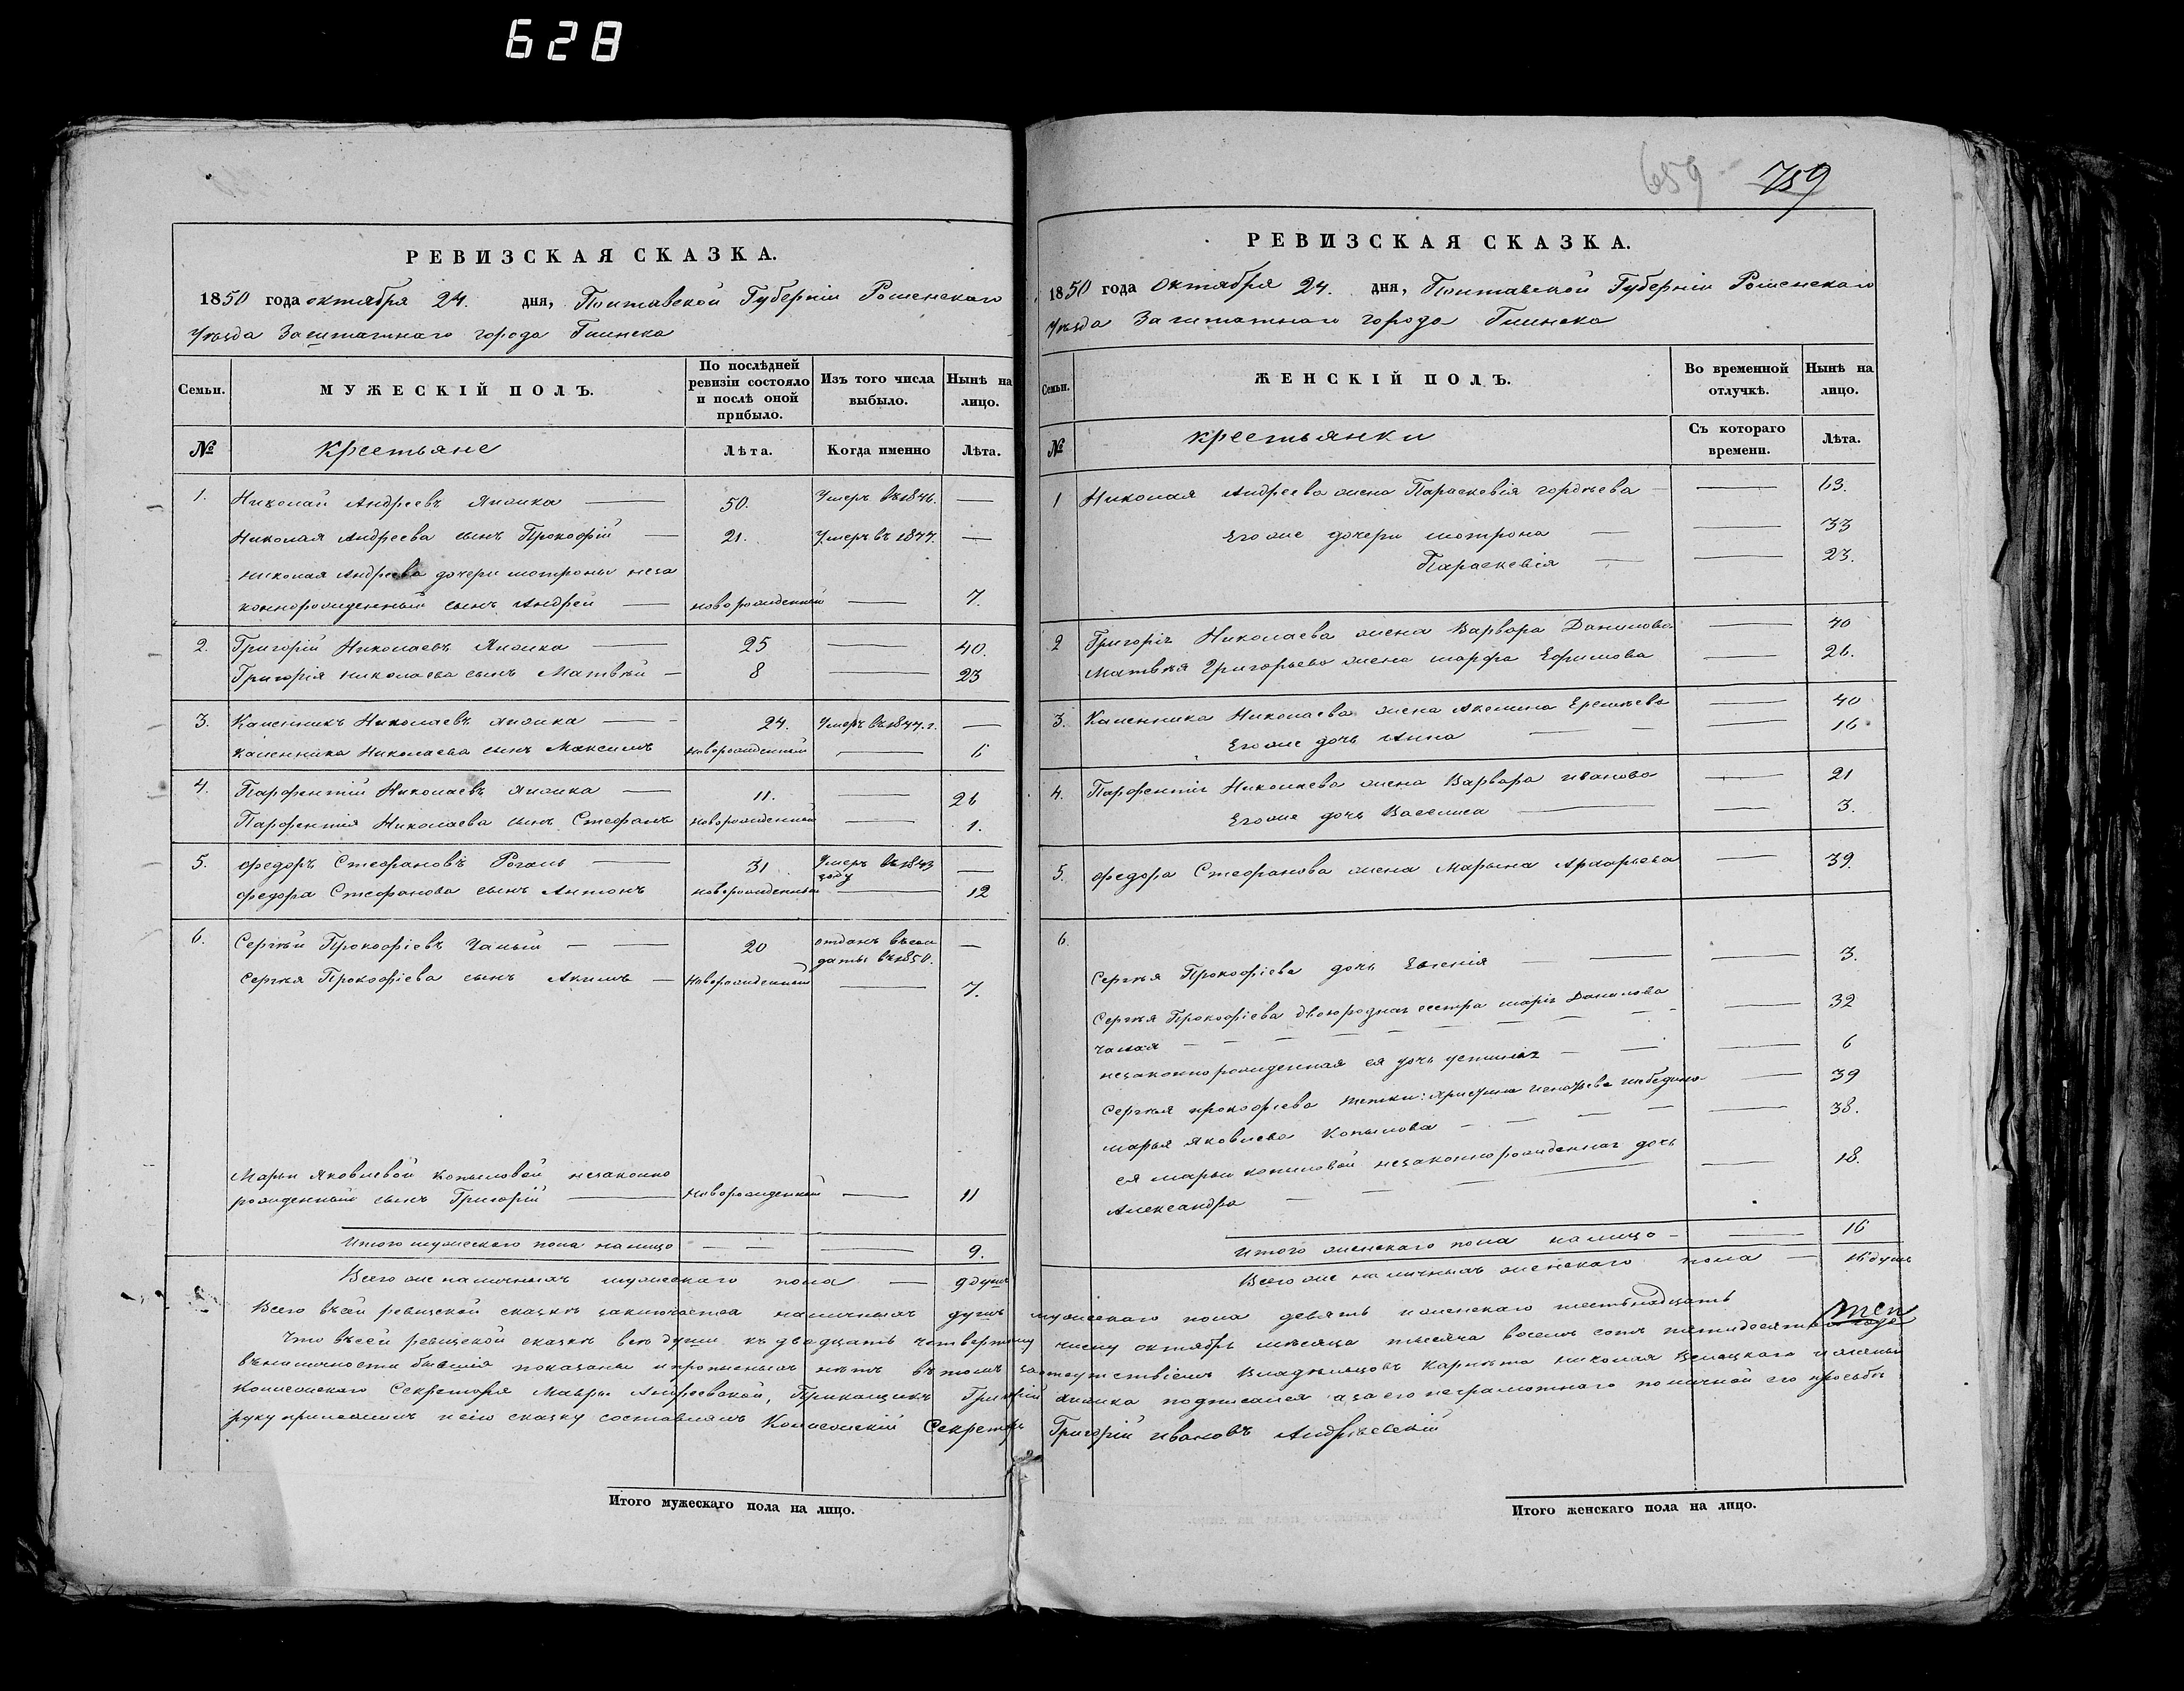 628
РЕВИЗСКАЯ СКАЗКА.
1850 года октября 24. дня, Полтавской Губерніи Роменскаго
Уѣзда Заштатнаго города Глинска
Семьи. МУЖЕСКІЙ ПОЛЪ. По послѣдней ревизіи состояло и послѣ оной прибыло. Изъ того числа выбыло. Нынѣ на лицо.
№ Крестьяне Лѣта. Когда именно Лѣта.
1. Николай Андреевъ — 50. Умеръ въ 1846. —
Николая Андреева сынъ Прокофій — 21. Умеръ въ 1844. —
Николая Андреева дочери мотроны неза
коннорожденный сынъ Андрей — новорожденный — 7.
2. Григорій Николаевъ — 25 — 40.
Григорія Николаева сынъ Матвѣй — 8 — 23
3. Каленникъ Николаевъ — 24. Умеръ въ 1844. г. —
Каленника Николаева сынъ Максимъ новорожденный — 6
4. Парфентій Николаевъ — 11. — 26
Парфентія Николаева сынъ Стефанъ новорожденный — 1.
5. Федоръ Стефановъ Рогаль — 31 Умеръ въ 1843 —
году
Федора Стефанова сынъ Антонъ новорожденный — 12
6. Сергѣй Прокофіевъ Чалый — — 20 отданъ въ сол —
даты въ 1850.
Сергѣя Прокофіева сынъ Акимъ — Новорожденный — 7.
Марьи Яковлевой Копыловой незаконно
рожденный сынъ Григорій — Новорожденный — 11
Итого мужескаго пола налицо — — — 9.
Всего же наличныхъ мужескаго пола — 9 душъ
Итого мужескаго пола на лицо.
659 759
РЕВИЗСКАЯ СКАЗКА.
1850 года Октября 24. дня, Полтавской Губерніи Роменскаго
Уѣзда Заштатнаго города Глинска
Семьи. ЖЕНСКІЙ ПОЛЪ. Во временной отлучкѣ. Нынѣ на лицо.
№ крестьянки Съ котораго времени. Лѣта.
1 Николая Андреева жена Параскевія гордѣева — 63.
Его же дочери мотрона — — 33
Параскевія — — 23.
2 Григорія Николаева жена Варвара Данилова — 40
Матвѣя Григорьева жена марфа Ефимова — 26.
3. Каленника Николаева жена Акелина — 40
Его же дочь Анна — — — 16
4. Парфентія Николаева жена Варвара иванова — 21
Его же дочь Василиса — — 3.
5. Федора Стефанова жена Марьина — 39.
6.
Сергѣя Прокофіева дочь Евгенія — — — 3.
Сергѣя Прокофіева двоюродная сестра марія Данилова — 32
чалая — — — — — — —
незаконнорожденная ея дочь устинья — — — 6
Сергѣя прокофіева тетки: — 39
марья Яковлева Копылова — — — — — 38.
ея марьи копыловой незаконнорожденная дочь — 18.
Александра — — — —
Итого женскаго пола налицо — — 16
Всего же наличныхъ женскаго пола — 16 душъ
Всего въ сей ревизской сказкѣ заключается наличныхъ душъ мужескаго пола девять и женскаго шестьнадцать
Что въ сей ревизской сказкѣ всѣ души къ двадцать четвертому числу октября мѣсяца тысяча восемь сотъ пятидесятаго года
въ наличности бывшія показаны и прописныхъ нѣтъ въ томъ за отсутствіемъ Владѣльцовъ Николая и жены
Колежскаго Секретаря Мавры Андреевской, Прикащикъ Григорій подписался а за его неграмотнаго по личной его просьбѣ
руку приложилъ и сію сказку составлялъ Колежскій Секретарь Григорій Ивановъ Андреевскій
Итого женскаго пола на лицо.